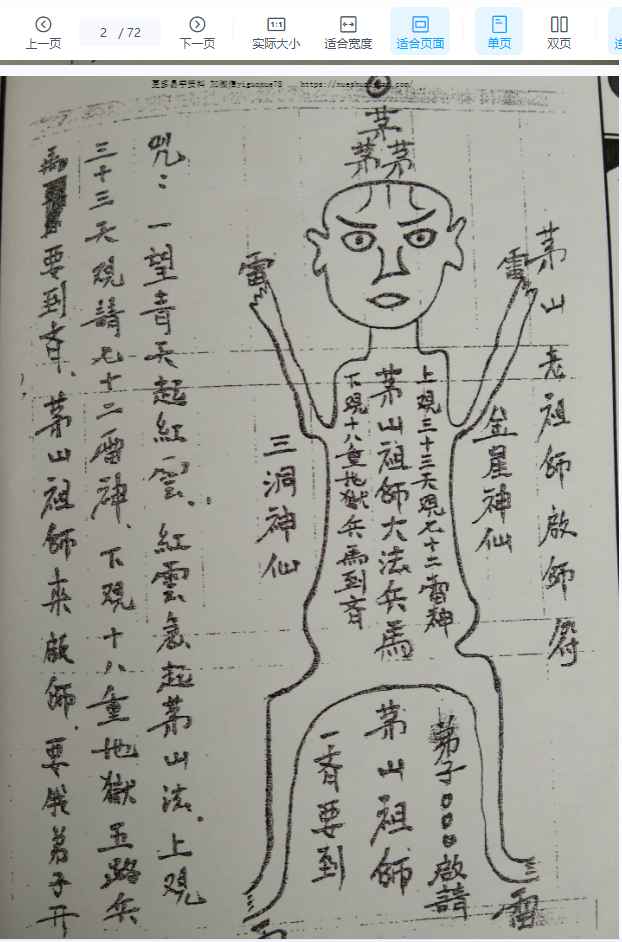 上一页
2 / 72
下一页
实际大小
适合宽度
适合页面
单页
双页
茅
茅茅
茅山老祖師啟師符
雷
雷
金星神仙
上觀三十三天觀七十二雷神
茅山祖師大法兵馬
下觀十八重地獄兵馬到斉
三洞神仙
弟子000啟請
茅山祖師
一斉要到
雷
咒：一望青天起紅雲，紅雲底起茅山法。上觀
三十三天觀請七十二雷神、下觀十八重地獄五路兵
馬要到斉、茅山祖師来啟師、要俄弟子开